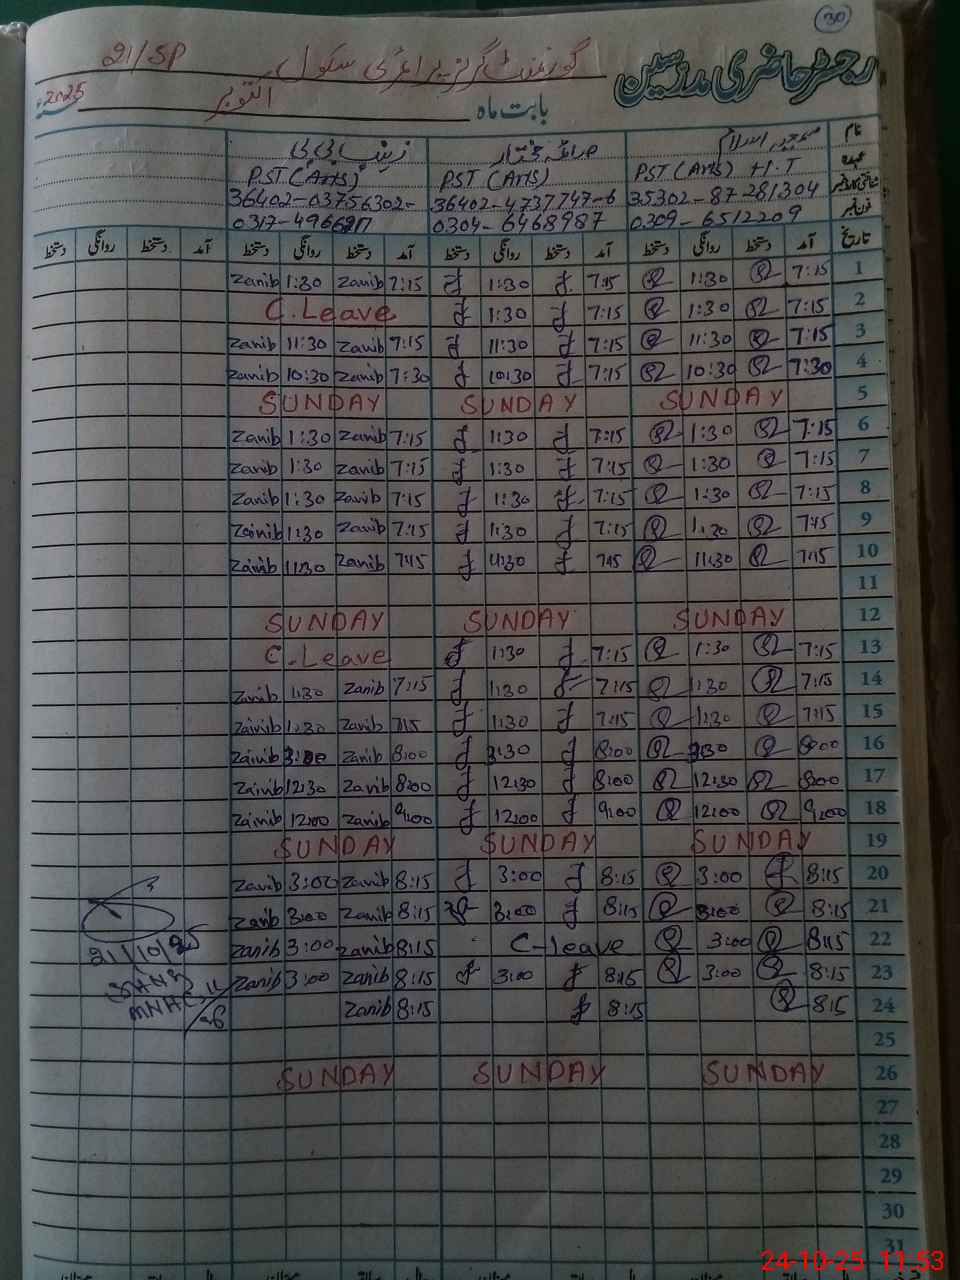 30
رجسٹر حاضری مدرسین گورنمنٹ گرلز پرائمری سکول 21/SP
بابت ماہ اکتوبر 2025
نام صائمہ مختار زینب بی بی
عہدہ PST (Arts) H.T PST (Arts) PST (Arts)
35302-87-281304 36402-4737747-6 36402-03756302-
فون نمبر 0309-6512209 0304-6468987 0317-4966
تاریخ آمد دستخط روانگی دستخط آمد دستخط روانگی دستخط آمد دستخط روانگی دستخط آمد دستخط روانگی دستخط
1 7:15 1:30 7:15 1:30 7:15 Zanib 1:30 Zanib
2 7:15 1:30 7:15 1:30 C.Leave
3 7:15 11:30 7:15 11:30 7:15 Zanib 11:30 Zanib
4 7:30 10:30 7:15 10:30 7:30 Zanib 10:30 Zanib
5 SUNDAY SUNDAY SUNDAY
6 7:15 1:30 7:15 1:30 7:15 Zanib 1:30 Zanib
7 7:15 1:30 7:15 1:30 7:15 Zanib 1:30 Zanib
8 7:15 1:30 7:15 1:30 7:15 Zanib 1:30 Zanib
9 7:15 1:30 7:15 1:30 7:15 Zanib 1:30 Zainib
10 7:15 11:30 7:15 11:30 7:15 Zanib 11:30 Zainib
11
12 SUNDAY SUNDAY SUNDAY
13 7:15 1:30 7:15 1:30 C.Leave
14 7:15 1:30 7:15 1:30 7:15 Zanib 1:30 Zanib
15 7:15 1:30 7:15 1:30 7:15 Zanib 1:30 Zainib
16 8:00 3:30 8:00 3:30 8:00 Zanib Zainib
17 8:00 12:30 8:00 12:30 8:00 Zanib 12:30 Zainib
18 9:00 12:00 9:00 12:00 9:00 Zanib 12:00 Zainib
19 SUNDAY SUNDAY SUNDAY
20 8:15 3:00 8:15 3:00 8:15 Zanib 3:00 Zanib
21 8:15 3:00 8:15 3:00 8:15 Zanib 3:00 Zanib
22 8:15 3:00 C-leave 8:15 Zanib 3:00 Zanib 21/10/25
23 8:15 3:00 8:15 3:00 8:15 Zanib 3:00 Zanib
24 8:15 8:15 8:15 Zanib
25
26 SUNDAY SUNDAY SUNDAY
27
28
29
30
31
24-10-25 11:53